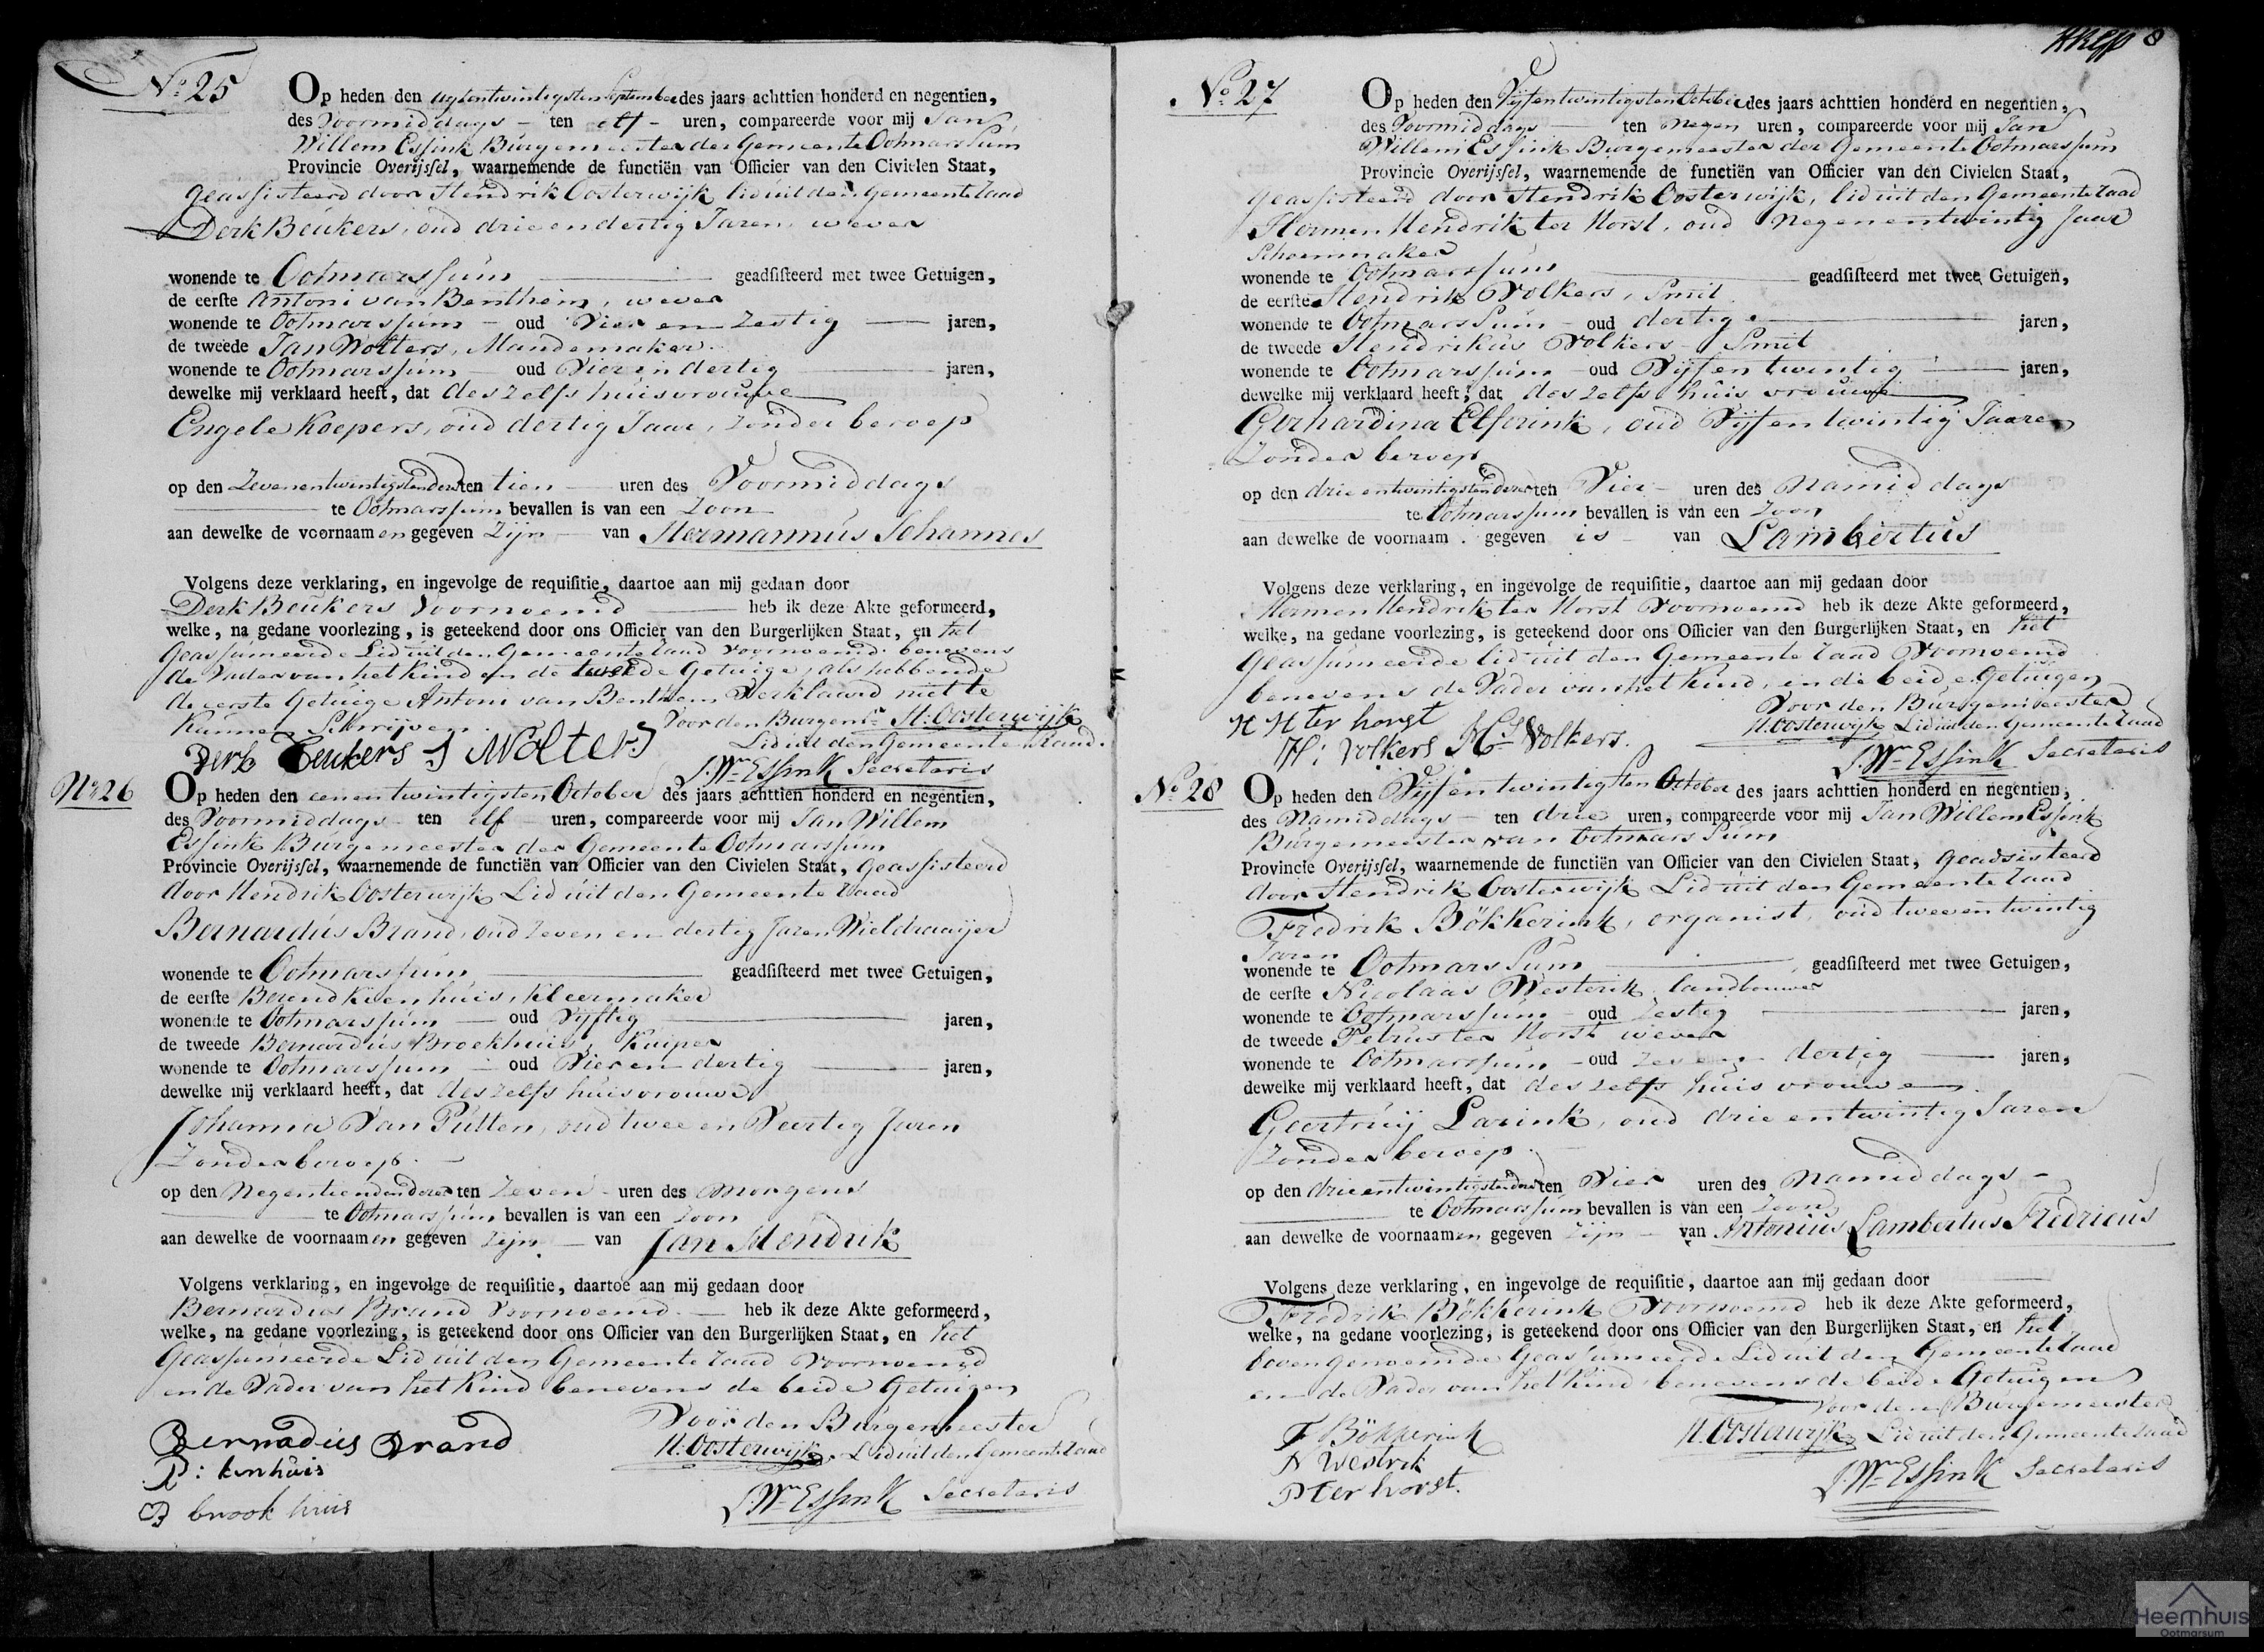 No. 25
Op heden den agtentwintigsten September des jaars achttien honderd en negentien,
des Voormiddags ten elf uren, compareerde voor mij Jan
Willem Essink Burgemeester der Gemeente Ootmarssum
Provincie Overijssel, waarnemende de functiën van Officier van den Civielen Staat,
geassisteerd door Hendrik Oosterwijk lid uit den gemeente raad
Derk Beukers, oud drie en dertig Jaren, wever
wonende te Ootmarssum geadsisteerd met twee Getuigen,
de eerste Antoni van Benthem, wever
wonende te Ootmarssum oud Vier en Zestig jaren,
de tweede Jan Wolters, Mandemaker
wonende te Ootmarssum oud Vier en dertig jaren,
dewelke mij verklaard heeft, dat deszelfs huisvrouwe
Engele Koepers, oud dertig Jaar, zonder beroep
op den Zevenentwintigsten dezer ten tien uren des Voormiddags
te Ootmarssum bevallen is van een Zoon
aan dewelke de voornaamen gegeven Zijn van Hermannus Johannes
Volgens deze verklaring, en ingevolge de requisitie, daartoe aan mij gedaan door
Derk Beukers Voornoemd heb ik deze Akte geformeerd,
welke, na gedane voorlezing, is geteekend door ons Officier van den Burgerlijken Staat, en het
Geassumeerde Lid uit den Gemeente raad voornoemd benevens
de Vader van het Kind en de tweede Getuige, als hebbende
de eerste Getuige Antoni van Benthem Verklaard niet te
Kunnen Schrijven.
Voor den Burgemr. H: Oosterwijk
Lid uit den Gemeente Raad.
Derk Beukers J Wolters
J. Wm Essink Secretaris
No. 26
Op heden den eenentwintigsten October des jaars achttien honderd en negentien,
des Voormiddags ten elf uren, compareerde voor mij Jan Willem
Essink Burgemeester der Gemeente Ootmarssum
Provincie Overijssel, waarnemende de functiën van Officier van den Civielen Staat, geassisteerd
door Hendrik Oosterwijk Lid uit den Gemeente raad
Bernardus Brand, oud zeven en dertig Jaren Wieldraaijer
wonende te Ootmarssum geadsisteerd met twee Getuigen,
de eerste Berend Kienhuis, kleermaker
wonende te Ootmarssum oud Vijftig jaren,
de tweede Bernardus Broekhuis, Kuiper
wonende te Ootmarssum oud Vier en dertig jaren,
dewelke mij verklaard heeft, dat deszelfs huisvrouwe
Johanna Van Putten, oud twee en Veertig Jaren
Zonder beroep.
op den Negentienden dezer ten Zeven uren des Morgens
te Ootmarssum bevallen is van een Zoon
aan dewelke de voornaamen gegeven zijn van Jan Hendrik
Volgens verklaring, en ingevolge de requisitie, daartoe aan mij gedaan door
Bernardus Brand Voornoemd. heb ik deze Akte geformeerd,
welke, na gedane voorlezing, is geteekend door ons Officier van den Burgerlijken Staat, en het
Geassumeerde Lid uit den Gemeente raad voornoemd
en de Vader van het Kind benevens de beide Getuigen
Voor den Burgermeester
H: Oosterwijk, Lid uit den Gemeente raad
Bernadus Brand
B: kinhuis
B brook huis
J. Wm Essink Secretaris
8
No. 27
Op heden den Vijfentwintigsten October des jaars achttien honderd en negentien,
des Voormiddags ten Negen uren, compareerde voor mij Jan
Willem Essink Burgemeester der Gemeente Ootmarssum
Provincie Overijssel, waarnemende de functiën van Officier van den Civielen Staat,
geassisteerd door Hendrik Oosterwijk, lid uit den Gemeente raad
Hermen Hendrik ter Horst, oud Negenentwintig Jaar
Schoenmaker
wonende te Ootmarssum geadsisteerd met twee Getuigen,
de eerste Hendrik Volkers, Smit
wonende te Ootmarssum oud dertig jaren,
de tweede Hendrikus Volkers Smit
wonende te Ootmarssum oud Vijfentwintig jaren,
dewelke mij verklaard heeft, dat deszelfs huisvrouwe
Gerhardina Elferink, oud Vijfentwintig Jaaren
Zonder beroep
op den drieentwintigsten dezer ten Vier uren des Namiddags
te Ootmarssum bevallen is van een Zoon
aan dewelke de voornaam gegeven is van Lambertus
Volgens deze verklaring, en ingevolge de requisitie, daartoe aan mij gedaan door
Hermen Hendrik ter Horst Voornoemd heb ik deze Akte geformeerd,
welke, na gedane voorlezing, is geteekend door ons Officier van den Burgerlijken Staat, en het
Geassumeerde lid uit den Gemeente raad Voornoemd
benevens de Vader van het Kind, en de beide Getuigen
Voor den Burgemeester
H H ter horst
H. Oosterwijk Lid uit den Gemeente raad
H: Volkers Hs Volkers.
J. Wm Essink Secretaris
No. 28
Op heden den Vijfentwintigsten October des jaars achttien honderd en negentien,
des Namiddags ten drie uren, compareerde voor mij Jan Willem Essink
Burgemeester van Ootmarssum
Provincie Overijssel, waarnemende de functiën van Officier van den Civielen Staat, Geadsisteerd
door Hendrik Oosterwijk Lid uit den Gemeente raad
Fredrik Bökkerink, organist, oud tweeentwintig
Jaren
wonende te Ootmarssum geadsisteerd met twee Getuigen,
de eerste Nicolaas Westerik landbouwer
wonende te Ootmarssum oud Zestig jaren,
de tweede Petrus ter Horst wever
wonende te Ootmarssum oud dertig jaren,
dewelke mij verklaard heeft, dat deszelfs huisvrouwe
Geertruij Larink, oud drie entwintig Jaren
Zonder beroep.
op den drieentwintigsten dezer ten Vier uren des Namiddags
te Ootmarssum bevallen is van een Zoon
aan dewelke de voornaamen gegeven zijn van Antonius Lambertus Fredricus
Volgens deze verklaring, en ingevolge de requisitie, daartoe aan mij gedaan door
Fredrik Bökkerink Voornoemd heb ik deze Akte geformeerd,
welke, na gedane voorlezing, is geteekend door ons Officier van den Burgerlijken Staat, en het
bovengenoemde Geassumeerde Lid uit den Gemeente raad
en de Vader van het Kind benevens de beide Getuigen
Voor den Burgemeester
F Bökkerink
H. Oosterwijk Lid uit den Gemeente raad
N Westrik
P ter horst.
J. Wm Essink Secretaris
Heemhuis
Ootmarsum